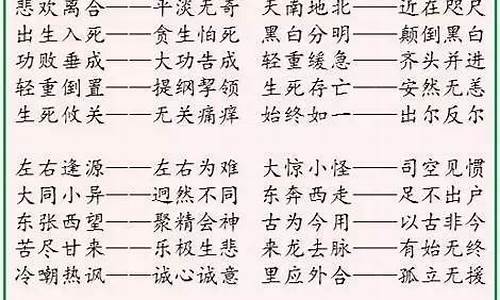 悲欢离合——平淡无哥 天南地北——近在咫尺
出生入死——贪生怕死 黑白分明——颠倒黑白
功败垂成——大功告成 轻重缓急——齐头并进
轻重倒置——提纲挈领 生死存亡——安然无恙
生死攸关——无关痛痒 始终如一——出尔反尔
左右逢源——左右为难 大惊小怪——司空见惯
大同小异——迥然不同 东奔西走——足不出户
东张西望——聚精会神 古为今用——以古非今
苦尽甘来——乐极生悲 来龙去脉——有始无终
冷嘲热讽——诚心诚意 里应外合——孤立无援